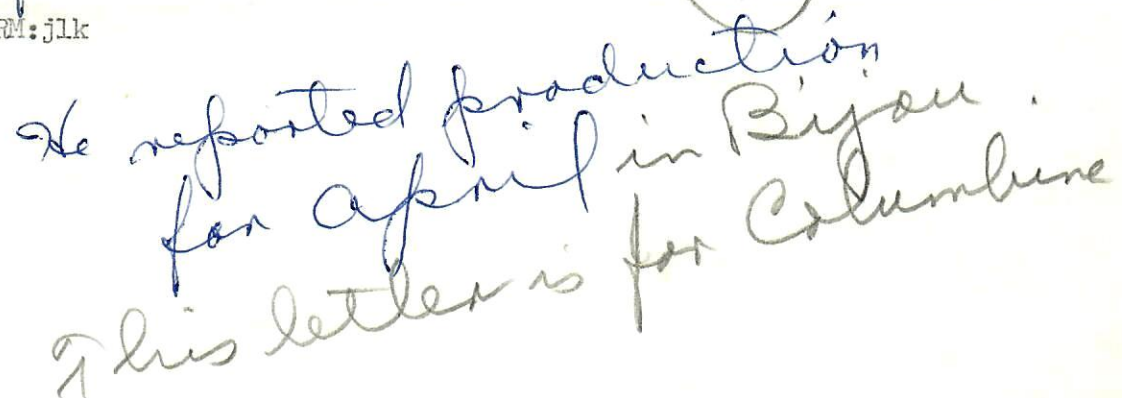 RM:jlk
He reported production
for April in Bijou.
This letter is for Columbine